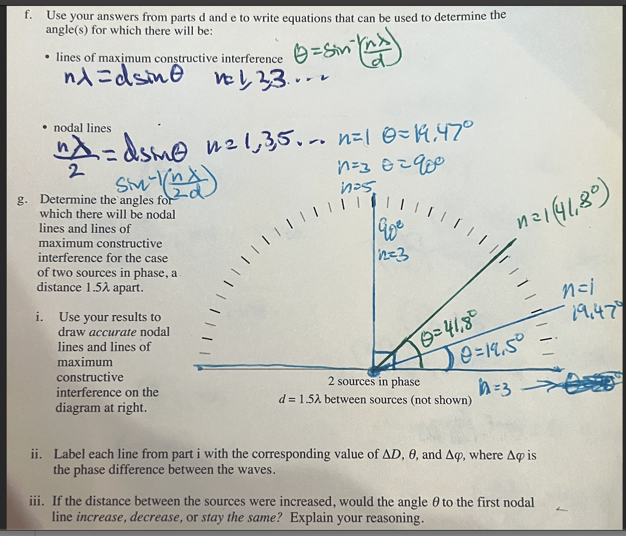 f. Use your answers from parts d and e to write equations that can be used to determine the
angle(s) for which there will be:
• lines of maximum constructive interference θ = sin⁻¹(nλ/d)
nλ = dsinθ n=1,2,3....
• nodal lines
nλ/2 = dsinθ n=1,3,5... n=1 θ=19.47°
sin⁻¹(nλ/2d) n=3 θ=90°
n=5
g. Determine the angles for
which there will be nodal
lines and lines of
maximum constructive
interference for the case
of two sources in phase, a
distance 1.5λ apart.
i. Use your results to
draw accurate nodal
lines and lines of
maximum
constructive
interference on the
diagram at right.
90°
n=3
n=1(41.8°)
n=1
19.47°
θ=41.8°
θ=19.5°
n=3
2 sources in phase
d = 1.5λ between sources (not shown)
ii. Label each line from part i with the corresponding value of ΔD, θ, and Δφ, where Δφ is
the phase difference between the waves.
iii. If the distance between the sources were increased, would the angle θ to the first nodal
line increase, decrease, or stay the same? Explain your reasoning.